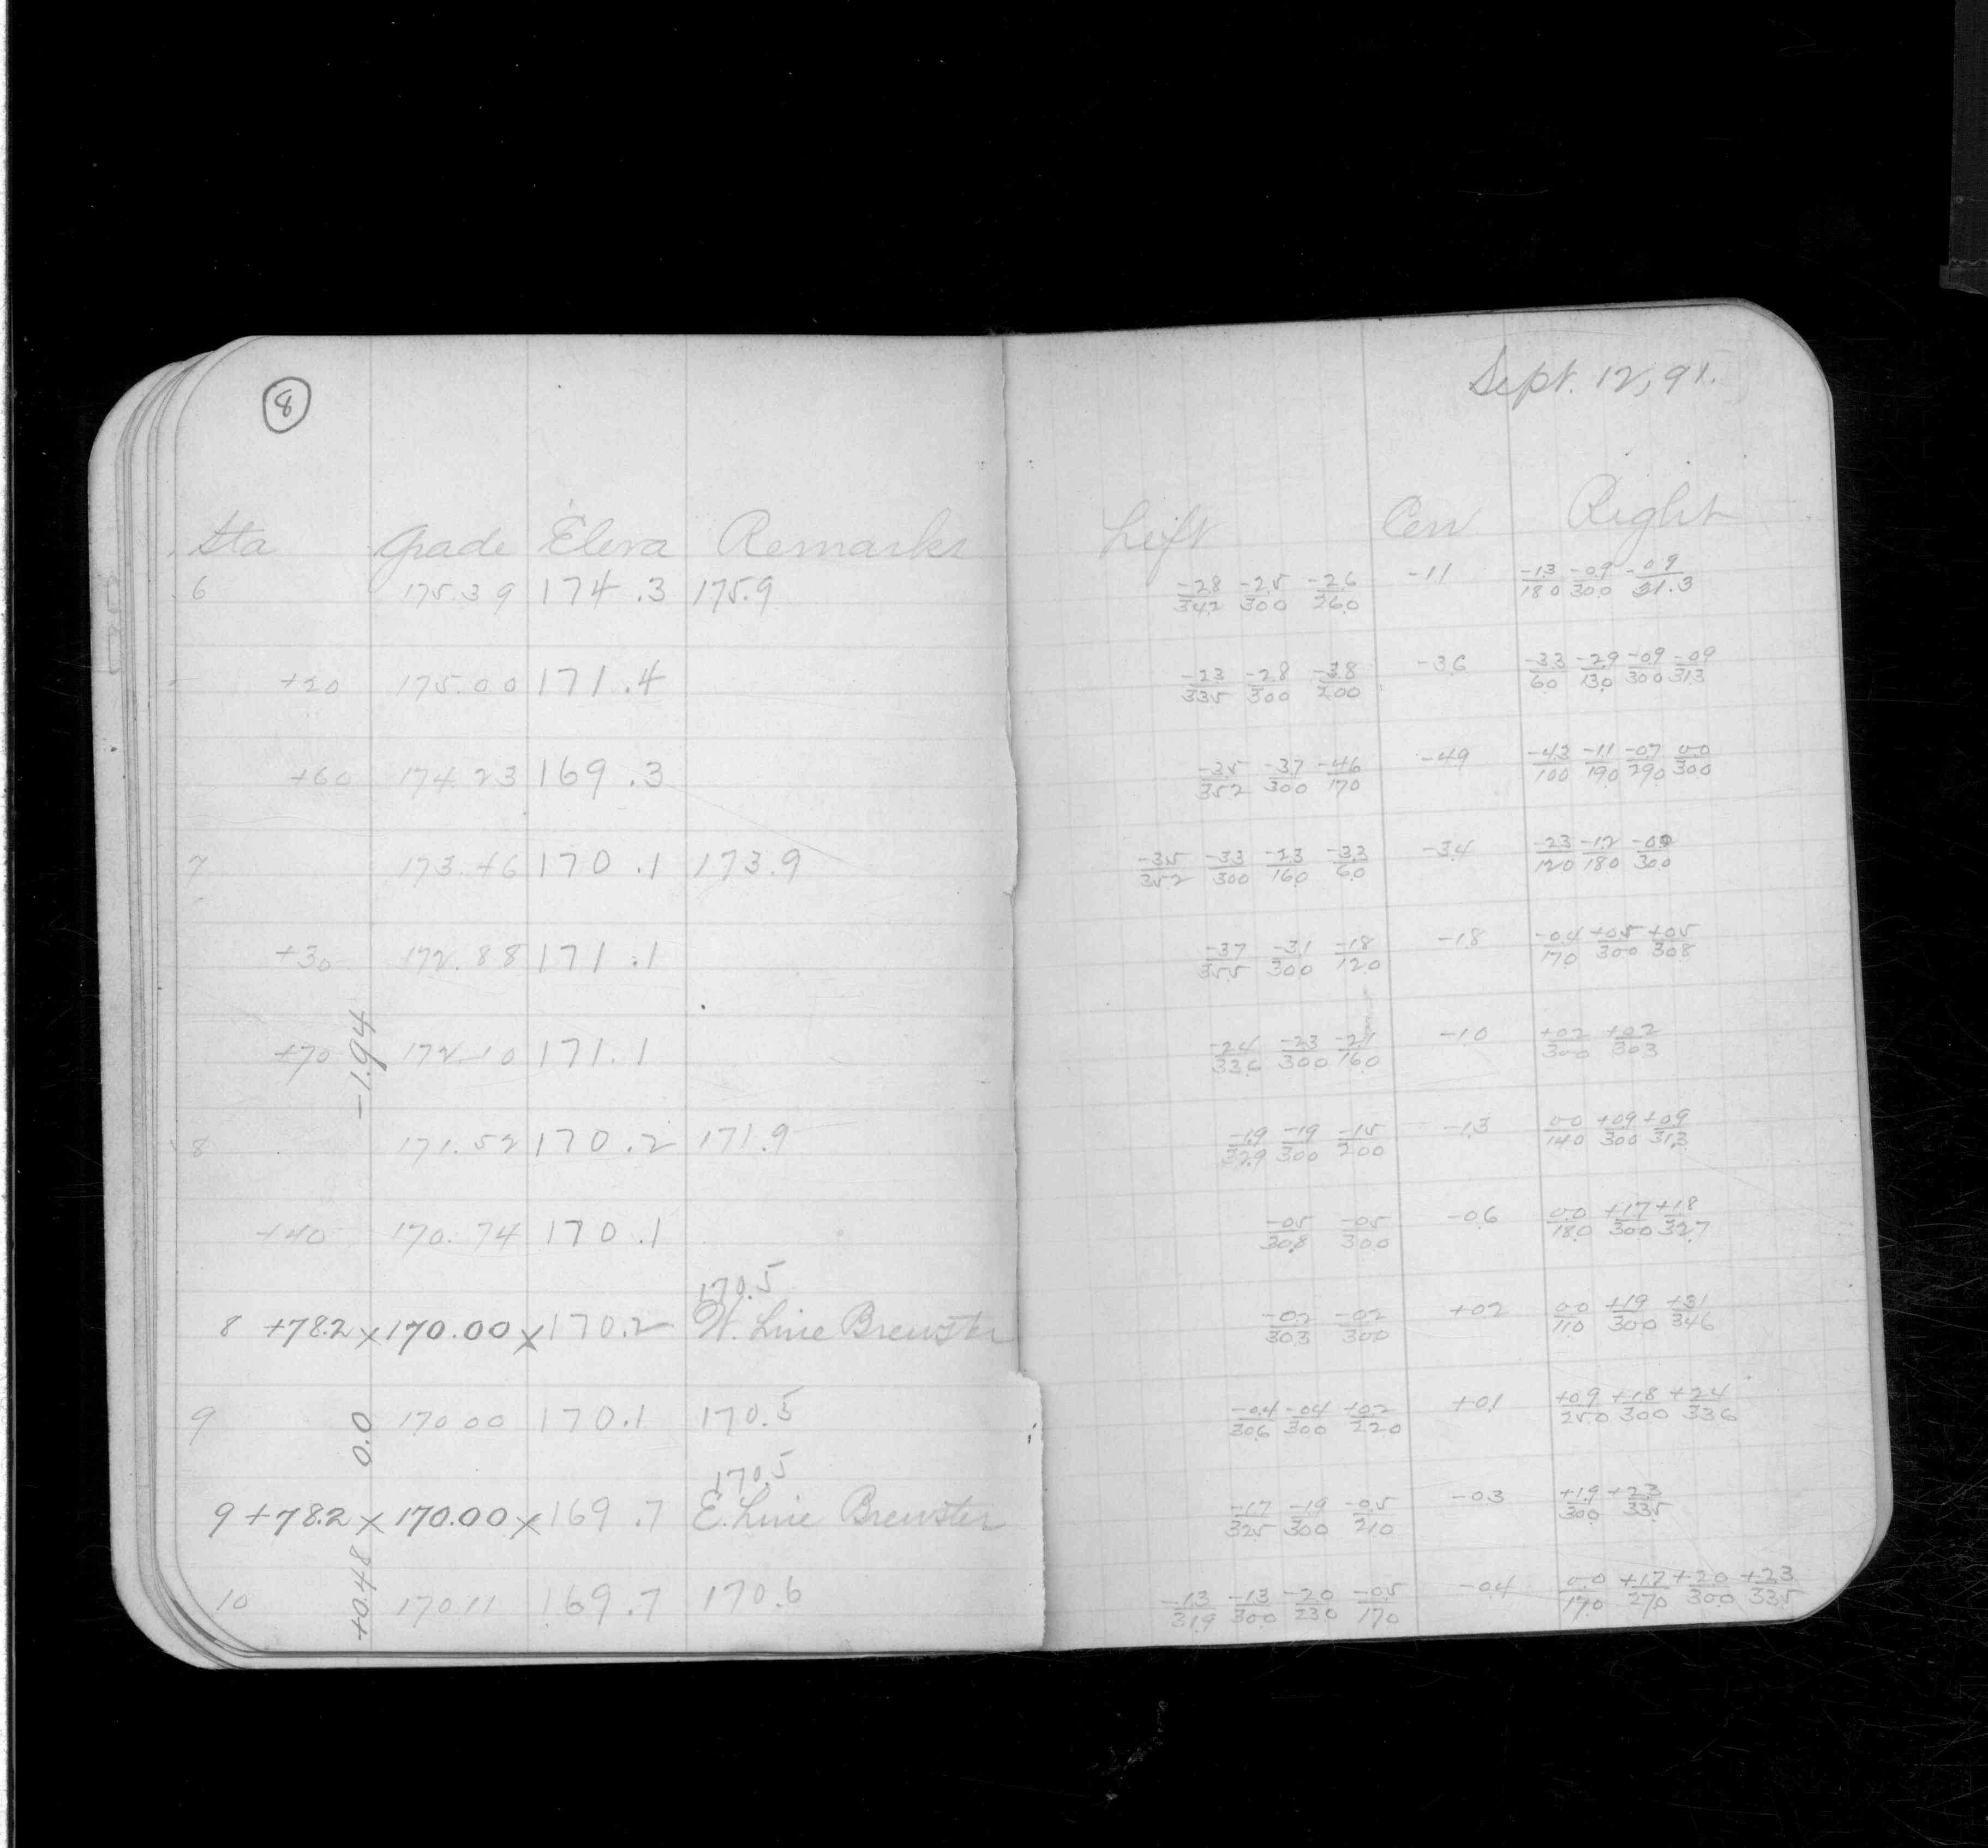 8
Sept. 12, 91.
Sta Grade Eleva Remarks Left Cen Right
6 175.39 174.3 175.9 -2.8/34.2 -2.5/30.0 -2.6/26.0 -1.1 -1.3/18.0 -0.9/30.0 -0.9/31.3
+20 175.00 171.4 -2.3/33.5 -2.8/30.0 -3.8/20.0 -3.6 -3.3/6.0 -2.9/13.0 -0.9/30.0 -0.9/31.3
+60 174.23 169.3 -3.5/35.2 -3.7/30.0 -4.6/17.0 -4.9 -4.3/10.0 -1.1/19.0 -0.7/29.0 0.0/30.0
7 173.46 170.1 173.9 -3.5/35.2 -3.3/30.0 -2.3/16.0 -3.3/6.0 -3.4 -2.3/12.0 -1.2/18.0 -0.0/30.0
+30 172.88 171.1 -3.7/35.5 -3.1/30.0 -1.8/12.0 -1.8 -0.4/17.0 +0.5/30.0 +0.5/30.8
-1.94
+70 172.10 171.1 -2.4/33.6 -2.3/30.0 -2.1/16.0 -1.0 +0.2/30.0 +0.2/30.3
8 171.52 170.2 171.9 -1.9/32.9 -1.9/30.0 -1.5/20.0 -1.3 0.0/14.0 +0.9/30.0 +0.9/31.3
+40 170.74 170.1 -0.5/30.8 -0.5/30.0 -0.6 0.0/18.0 +1.7/30.0 +1.8/32.7
170.5
8 +78.2 x 170.00 x 170.2 W. Line Brewster -0.2/30.3 -0.2/30.0 +0.2 0.0/11.0 +1.9/30.0 +3.1/34.6
0.0
9 170.00 170.1 170.5 -0.4/30.6 -0.4/30.0 +0.2/22.0 +0.1 +0.9/25.0 +1.8/30.0 +2.4/33.6
170.5
9 +78.2 x 170.00 x 169.7 E. Line Brewster -1.7/32.5 -1.9/30.0 -0.5/21.0 -0.3 +1.9/30.0 +2.3/33.5
+0.48
10 170.11 169.7 170.6 -1.3/31.9 -1.3/30.0 -2.0/23.0 -0.5/17.0 -0.4 0.0/17.0 +1.7/27.0 +2.0/30.0 +2.3/33.5